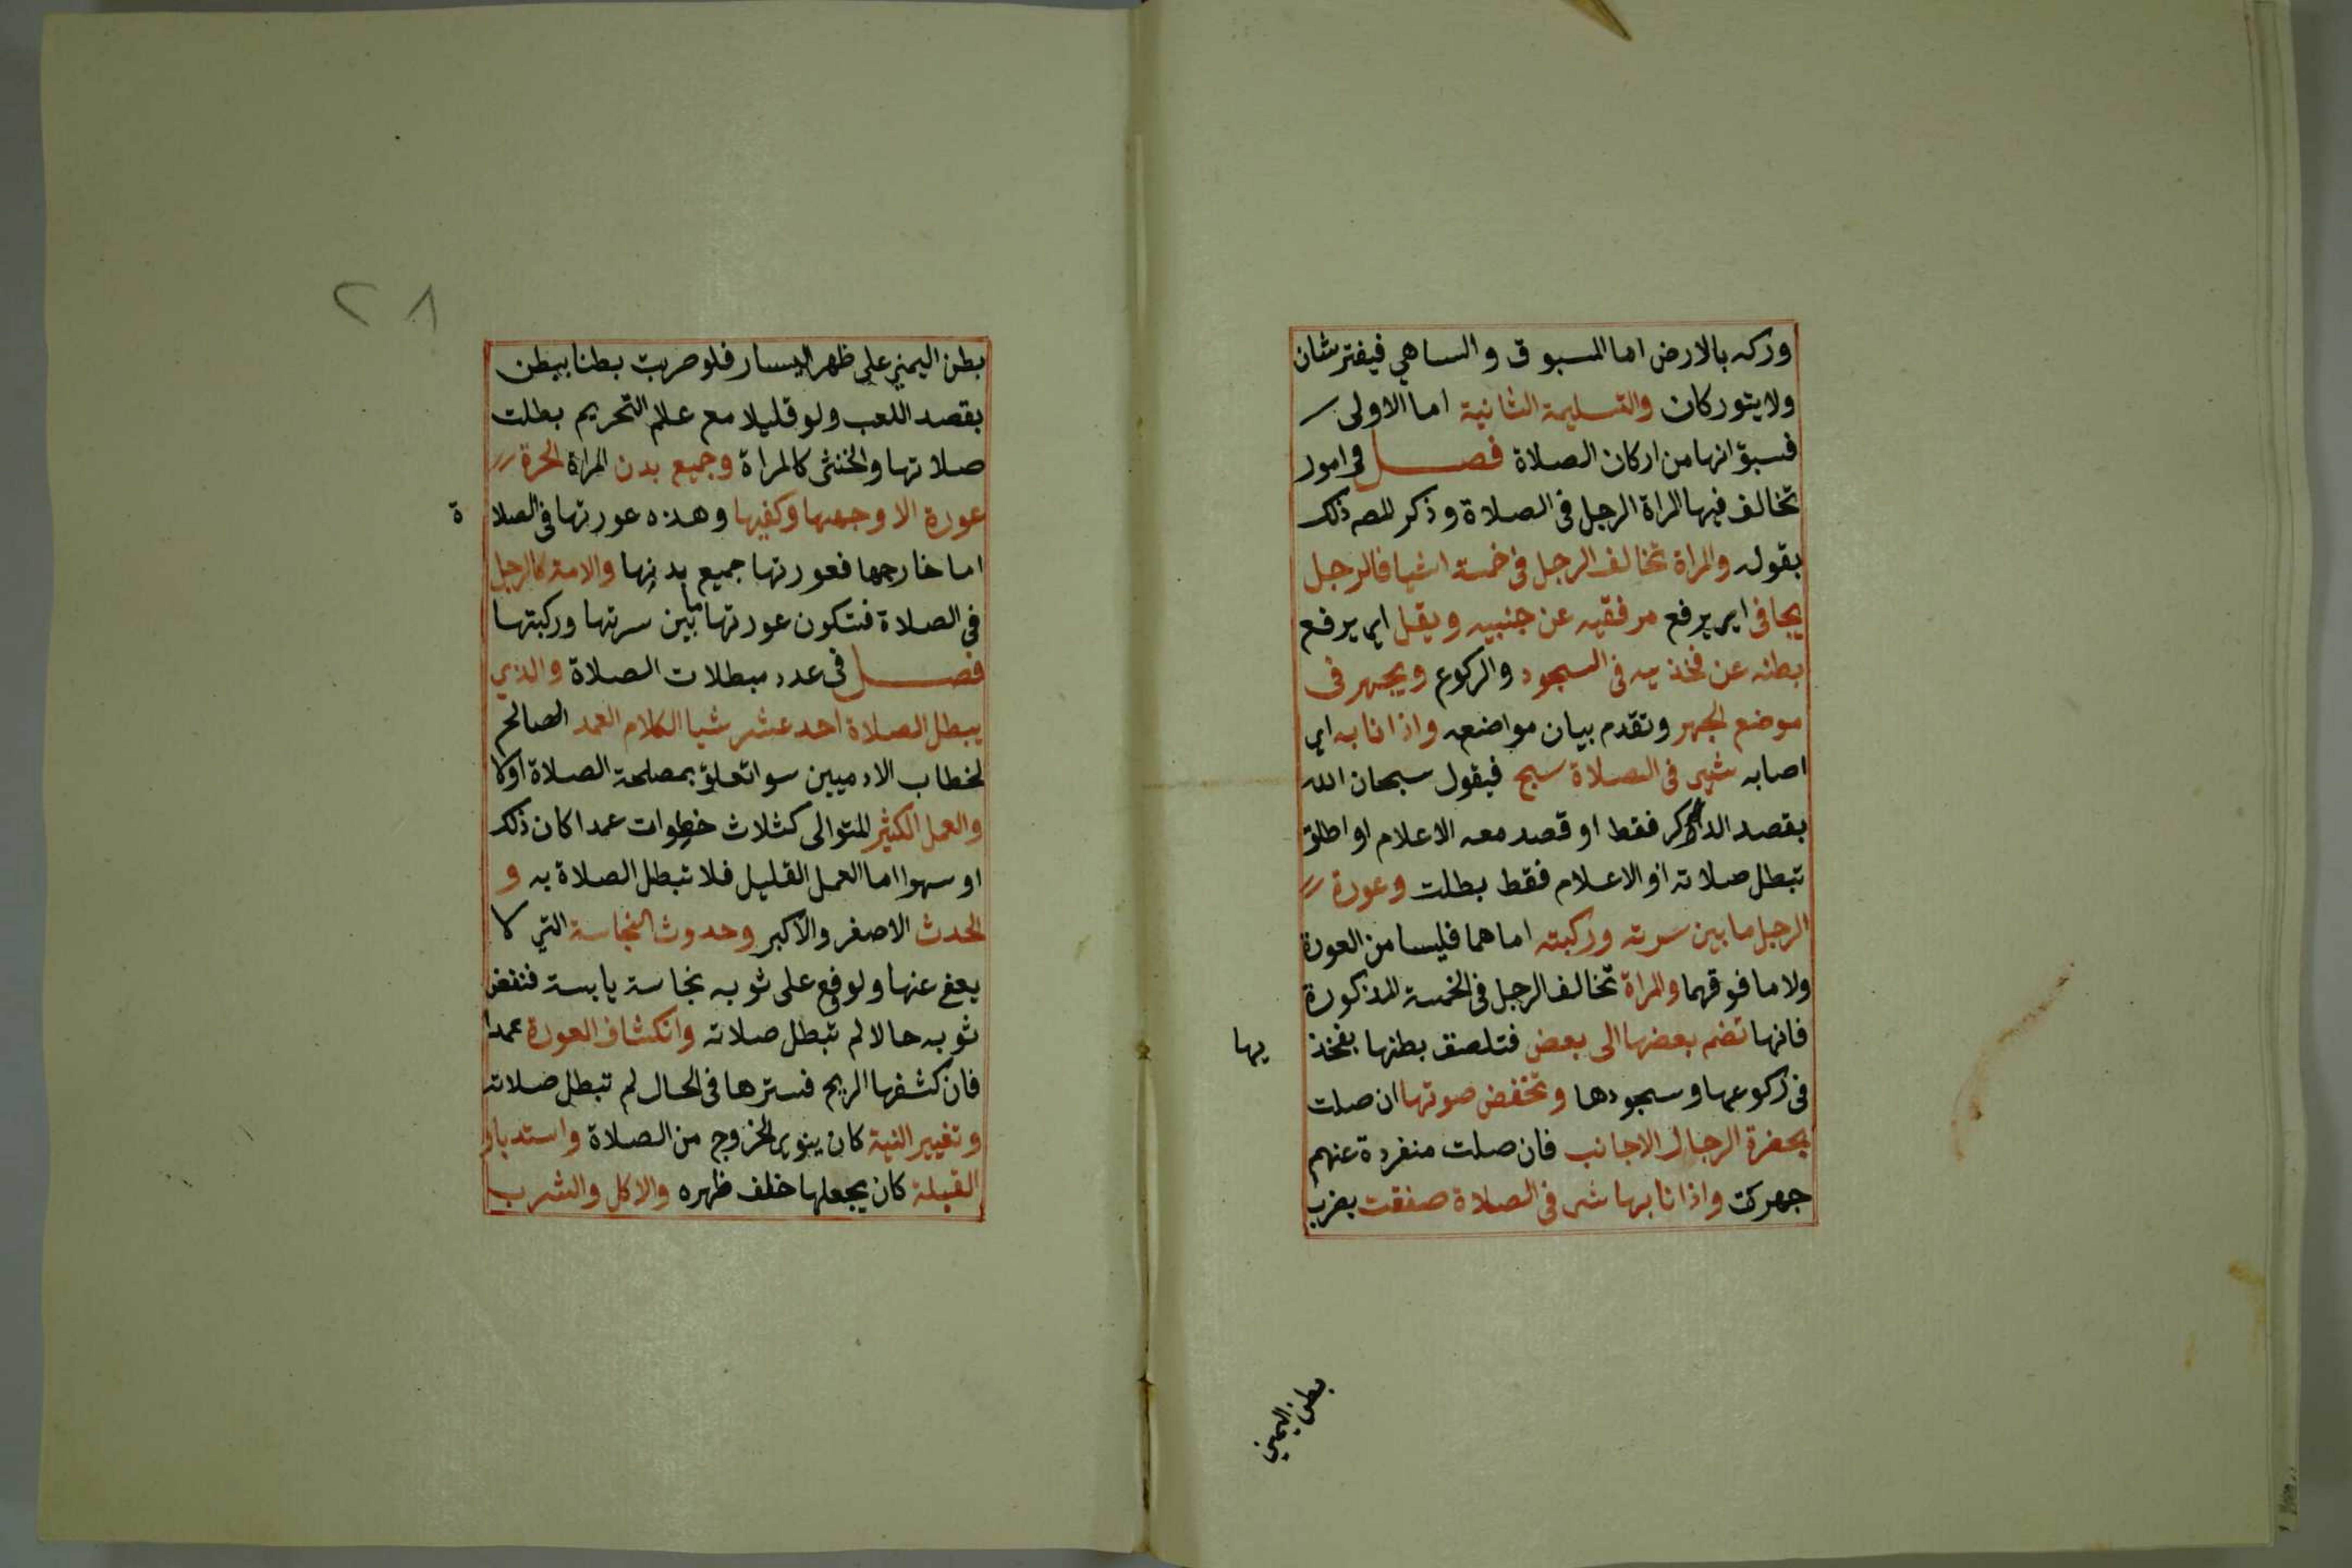 وركه بالارض اما المسبوق والساهي فيفترشان
ولا يتوركان والتسليمة الثانية اما الاولى
فسبق انها من اركان الصلاة فصل في امور
تخالف فيها المراة الرجل فى الصلاة وذكر المصه ذلك
بقوله والمراة تخالف الرجل فى خمسة اشيا فالرجل
يجافى اي يرفع مرفقيه عن جنبيه ويقل اي يرفع
بطنه عن فخذيه فى السجود والركوع ويجهر فى
موضع الجهر وتقدم بيان مواضعه واذا نابه اي
اصابه شي فى الصلاة سبح فيقول سبحان الله
بقصد الذكر فقط او قصد معه الاعلام او اطلق
تبطل صلاته او الاعلام فقط بطلت وعورة
الرجل ما بين سرته وركبته اما هما فليسا من العورة
ولا ما فوقهما والمراة تخالف الرجل فى الخمسة المذكورة
فانها تضم بعضها الى بعض فتلصق بطنها بفخذ يها
فى ركوعها وسجودها وتخفض صوتها ان صلت
بحضرة الرجال الاجانب فان صلت منفردة عنهم
جهرت واذا نابها شي فى الصلاة صفقت بضرب
بطن اليمني
٢٨
بطن اليمني على ظهر اليسار فلو ضربت بطنا ببطن
بقصد اللعب ولو قليلا مع علم التحريم بطلت
صلاتها والخنثى كالمراة وجميع بدن المراة الحرة
عورة الا وجهها وكفيها وهذه عورتها فى الصلا ة
اما خارجها فعورتها جميع بدنها والامة كالرجل
فى الصلاة فتكون عورتها ما بين سرتها وركبتها
فصل فى عدد مبطلات الصلاة والذي
يبطل الصلاة احد عشر شيا الكلام العمد الصالح
لخطاب الادميين سوا تعلق بمصلحة الصلاة اولا
والعمل الكثير المتوالى كثلاث خطوات عمدا كان ذلك
او سهوا اما العمل القليل فلا تبطل الصلاة به و
الحدث الاصغر والاكبر وحدوث النجاسة التي لا
يعفى عنها ولو وقع على ثوبه نجاسة يابسة فنفض
ثوبه حالا لم تبطل صلاته وانكشاف العورة عمدا
فان كشفها الريح فسترها فى الحال لم تبطل صلاته
وتغيير النية كان ينوي الخروج من الصلاة واستدبار
القبلة كان يجعلها خلف ظهره والاكل والشرب